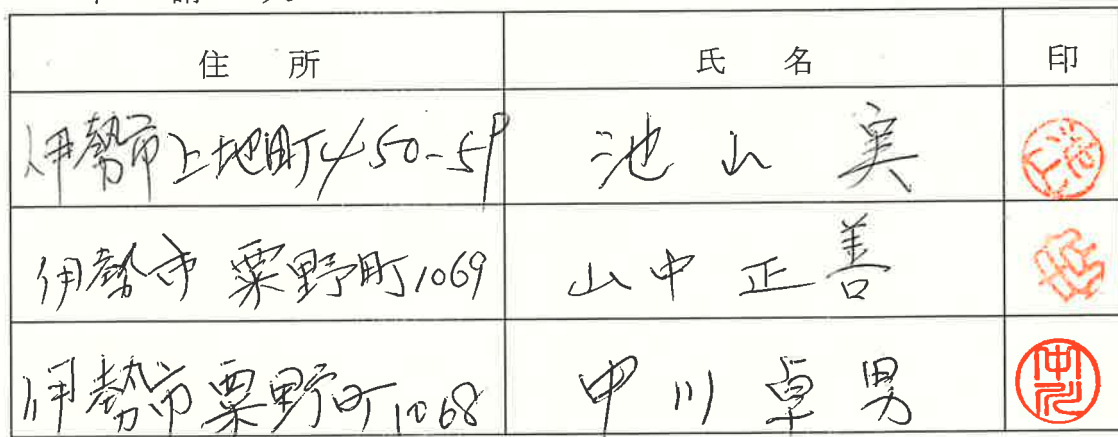 住所 氏名 印
伊勢市上地町4150-59 池山実
伊勢市粟野町1069 山中正善
伊勢市粟野町1068 中川卓男